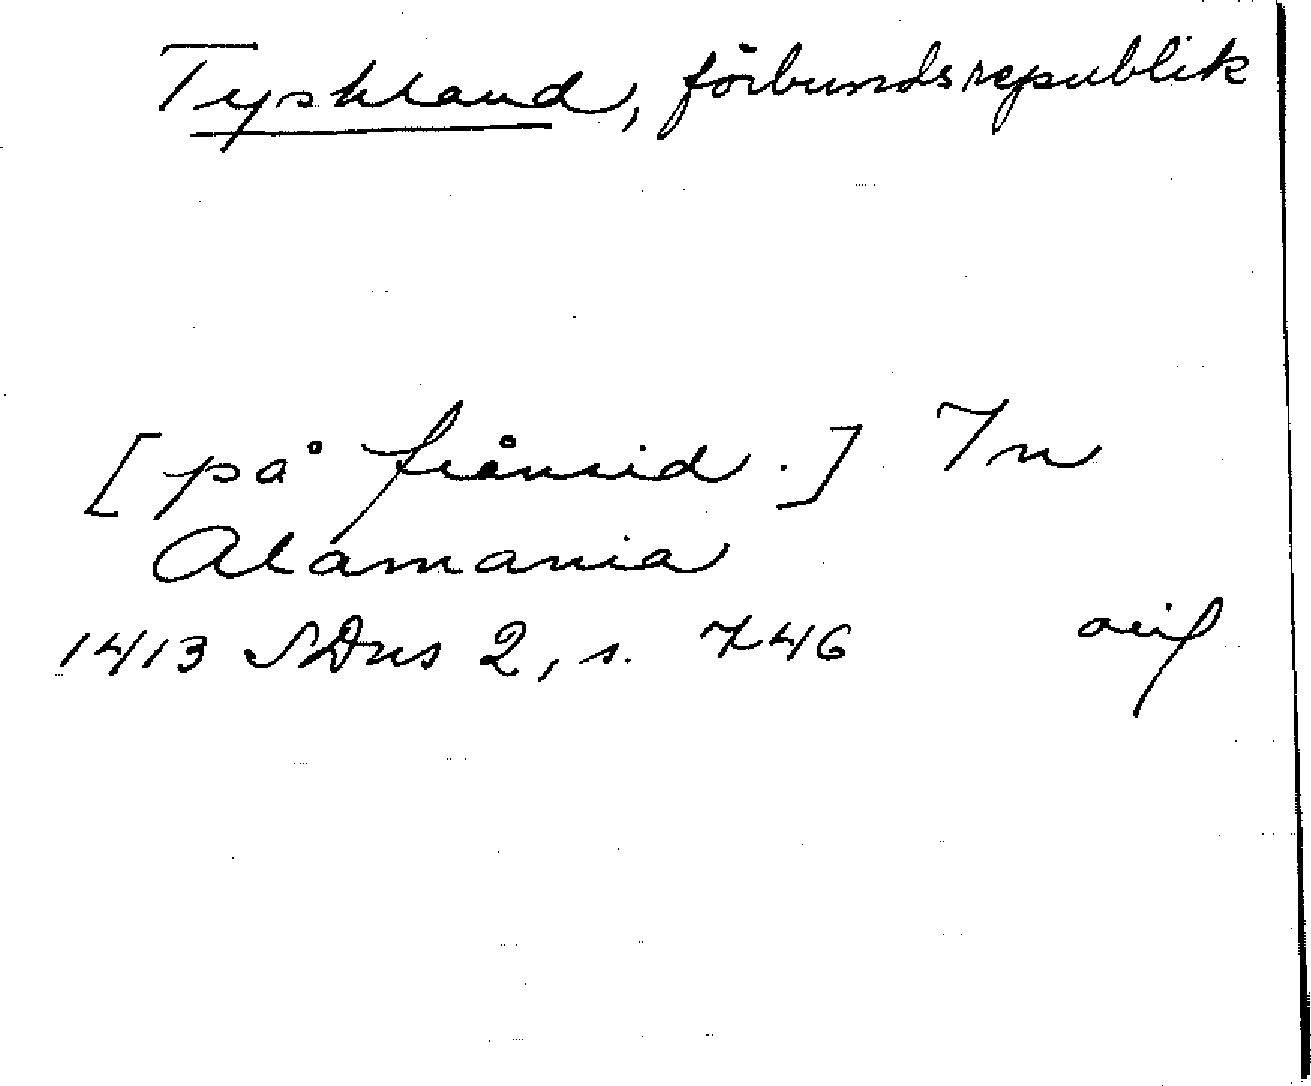 Tyskland, förbundsrepublik
[på frånsid.] In
Alamania
1413 SDns 2, s. 746 avif